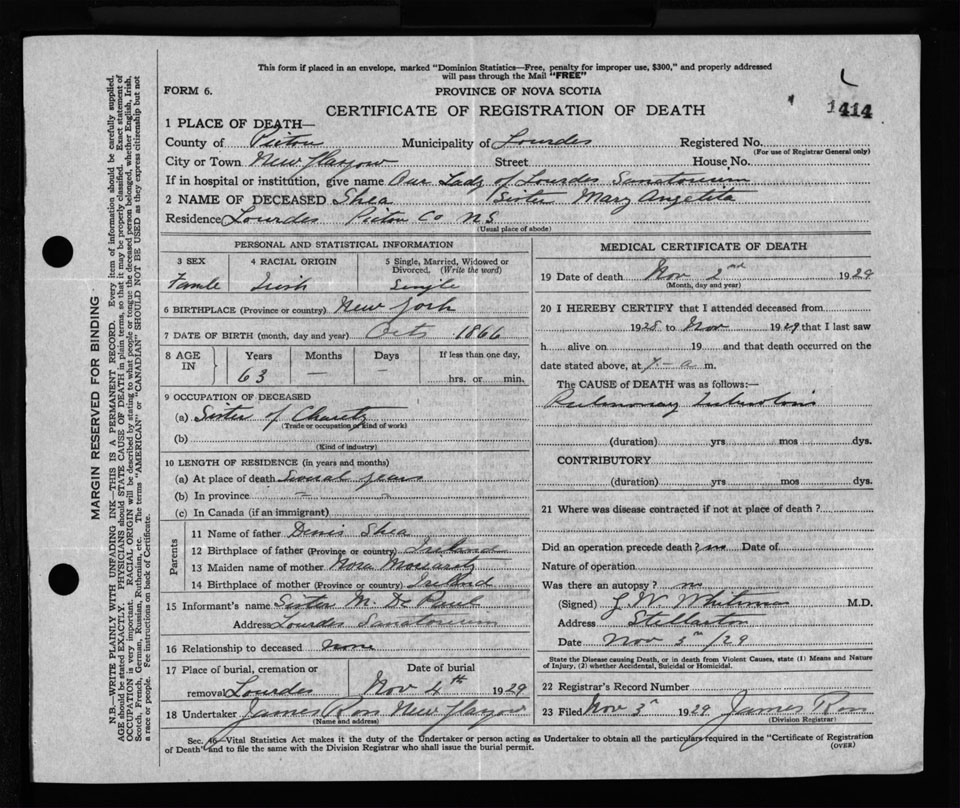 This form if placed in an envelope, marked "Dominion Statistics—Free, penalty for improper use, $300," and properly addressed
will pass through the Mail "FREE"
FORM 6.
PROVINCE OF NOVA SCOTIA
CERTIFICATE OF REGISTRATION OF DEATH
1414
1 PLACE OF DEATH—
County of Pictou Municipality of Lourdes Registered No.
(For use of Registrar General only)
City or Town New Glasgow Street House No.
If in hospital or institution, give name Our Lady of Lourdes Sanatorium
2 NAME OF DECEASED Shea (Sister Mary Angelita
Residence Lourdes Pictou Co N.S
(Usual place of abode)
PERSONAL AND STATISTICAL INFORMATION
3 SEX 4 RACIAL ORIGIN 5 Single, Married, Widowed or Divorced. (Write the word)
Famle Irish Single
6 BIRTHPLACE (Province or country) New York
7 DATE OF BIRTH (month, day and year) Oct 1866
8 AGE IN Years Months Days If less than one day,
63 — — hrs. or min.
9 OCCUPATION OF DECEASED
(a) Sister of Charity
(Trade or occupation or kind of work)
(b)
(Kind of industry)
10 LENGTH OF RESIDENCE (in years and months)
(a) At place of death years
(b) In province
(c) In Canada (if an immigrant)
Parents
11 Name of father Denis Shea
12 Birthplace of father (Province or country) Ireland
13 Maiden name of mother Nora
14 Birthplace of mother (Province or country) Ireland
15 Informant's name Sister M. De Paul
Address Lourdes Sanatorium
16 Relationship to deceased none
17 Place of burial, cremation or Date of burial
removal Lourdes Nov 4th 1929
18 Undertaker James Ross New Glasgow
(Name and address)
MEDICAL CERTIFICATE OF DEATH
19 Date of death Nov 2nd 1929
(Month, day and year)
20 I HEREBY CERTIFY that I attended deceased from
1928 to Nov 1929 that I last saw
h alive on 19 and that death occurred on the
date stated above, at a m.
The CAUSE OF DEATH was as follows:—
Pulmonary Tuberculosis
(duration) yrs mos dys.
CONTRIBUTORY
(duration) yrs mos dys.
21 Where was disease contracted if not at place of death?
Did an operation precede death? no Date of
Nature of operation
Was there an autopsy? no
(Signed) Whitman M.D.
Address Stellarton
Date Nov 3rd/29
State the Disease causing Death, or in death from Violent Causes, state (1) Means and Nature
of Injury, (2) whether Accidental, Suicidal or Homicidal.
22 Registrar's Record Number
23 Filed Nov 3rd 1929 James Ross
(Division Registrar)
Sec. 46—Vital Statistics Act makes it the duty of the Undertaker or person acting as Undertaker to obtain all the particulars required in the "Certificate of Registration
of Death" and to file the same with the Division Registrar who shall issue the burial permit.
(OVER)
MARGIN RESERVED FOR BINDING
N.B.—WRITE PLAINLY WITH UNFADING INK—THIS IS A PERMANENT RECORD. Every item of information should be carefully supplied.
AGE should be stated EXACTLY. PHYSICIANS should STATE CAUSE OF DEATH in plain terms, so that it may be properly classified. Exact statement of
OCCUPATION is very important. RACIAL ORIGIN will be described by stating to what people or tongue the deceased person belonged, whether English, Irish,
Scotch, French, German, Russian, Ruthenian, etc. The terms "AMERICAN" or "CANADIAN" SHOULD NOT BE USED as they express citizenship but not
a race or people. Fee instructions on back of Certificate.